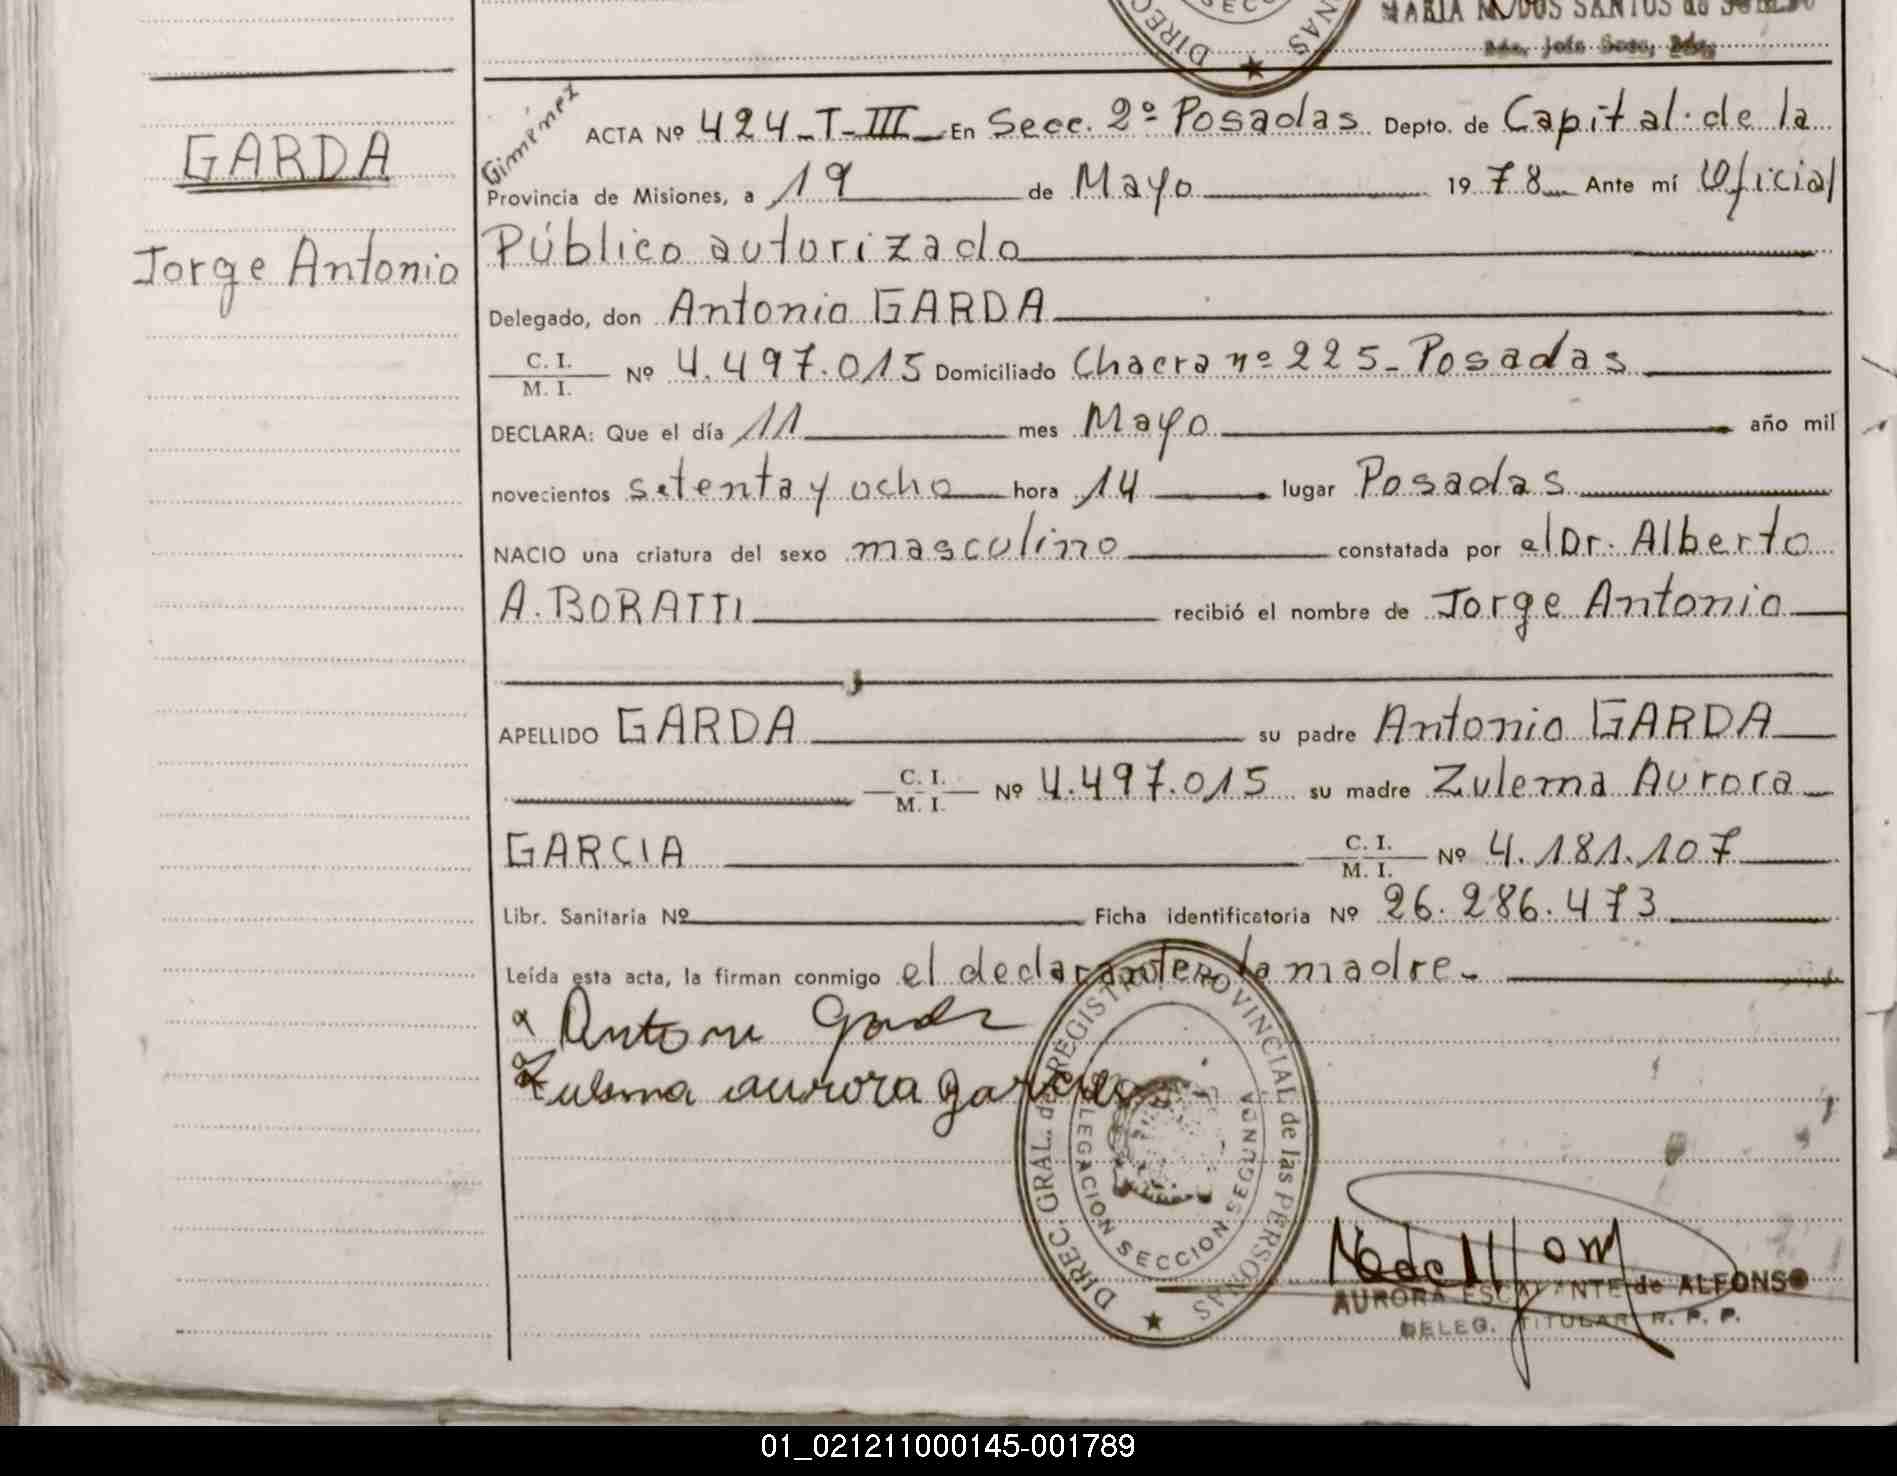 MARIA N. DOS SANTOS de
GARDA
Jorge Antonio
Giménez
ACTA Nº 424-T-III- En Secc. 2º Posadas Depto. de Capital de la
Provincia de Misiones, a 19 de Mayo 1978 Ante mí Oficial
Público autorizado
Delegado, don Antonio GARDA
C. I.
M. I. Nº 4.497.015 Domiciliado Chacra nº 225- Posadas
DECLARA: Que el día 11 mes Mayo año mil
novecientos setenta y ocho hora 14 lugar Posadas
NACIO una criatura del sexo masculino constatada por el Dr. Alberto
A. BORATTI recibió el nombre de Jorge Antonio
APELLIDO GARDA su padre Antonio GARDA
C. I.
M. I. Nº 4.497.015 su madre Zulema Aurora
GARCIA C. I.
M. I. Nº 4.181.107
Libr. Sanitaria Nº Ficha identificatoria Nº 26.286.473
Leída esta acta, la firman conmigo el declarante y la madre.-
Antonio Garda
Zulema aurora garcia
DIREC. GRAL. del REGISTRO PROVINCIAL de las PERSONAS
DELEGACION SECCION SEGUNDA
AURORA ESCALANTE de ALFONSO
DELEG. TITULAR R. P. P.
01_021211000145-001789